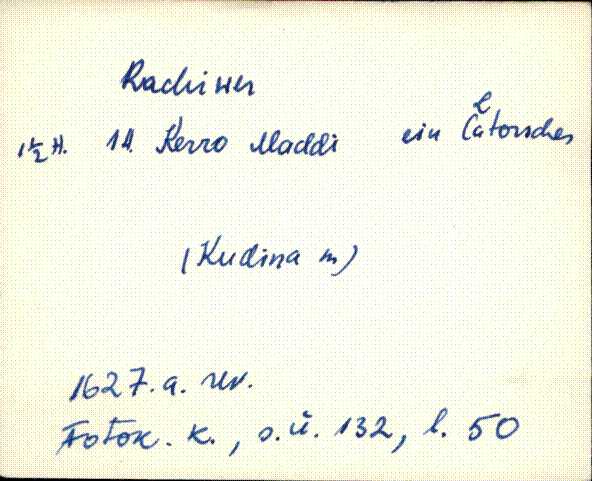 Rachiwer
1½ H. 14. Kerro Maddi ein Catorsches
(Kudina m)
1627. a. rev.
Fotok. k., s.ü. 132, l. 50